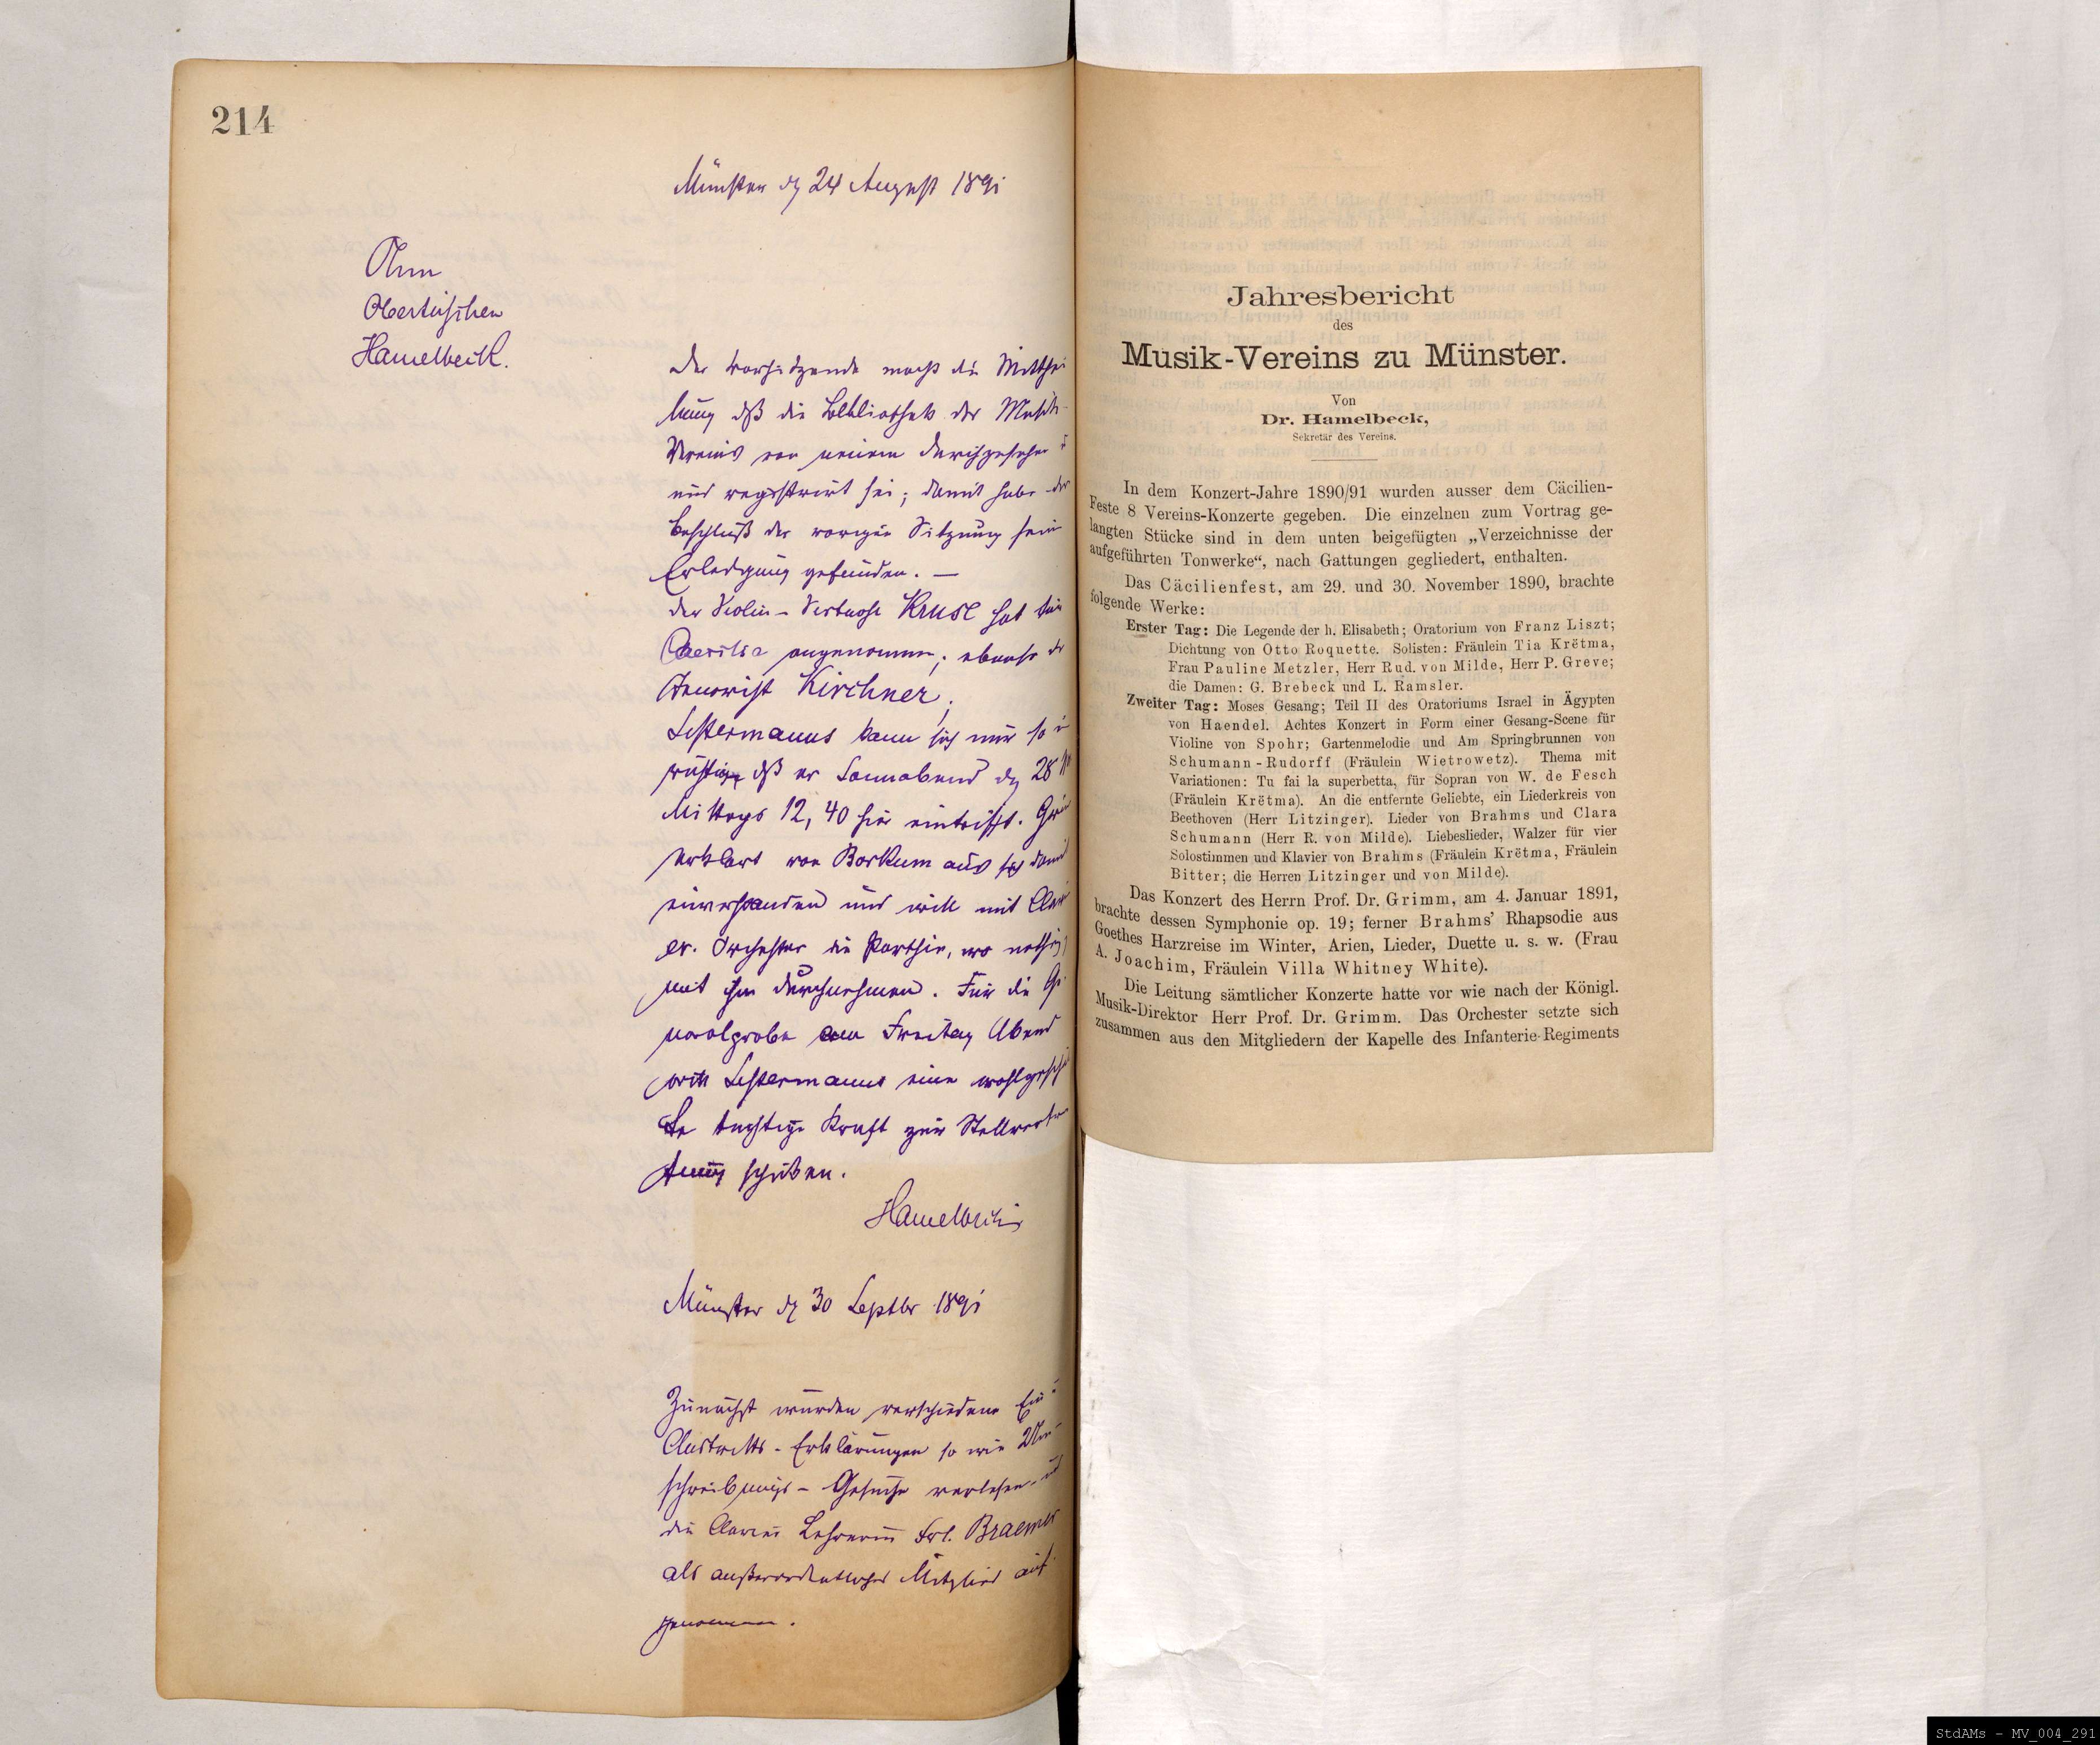 214
Münster dz 24 August 1891
Ohm
Obertüschen
Hamelbeck.
Der Vorsitzende macht die Mitthei
lung dß die Bibliothek des Musik-
Vereins von neuem durchgesehen
und registrirt sei; damit habe der
Beschluß der vorigen Sitzung sein
Erledigung gefunden. —
Der Violin-Virtuose Kruse hat für
Caecilia angenommen; ebenso der
Tenorist Kirchner;
Listermanns kann sich nur so
dß er Sonnabend dz 28
Mittags 12,40 hier eintrifft.
erklärt von Borkum aus sich damit
einverstanden und will mit Clavier
ev. Orchester die Parthie, wo nöthig,
mit ihm durchnehmen. Für die Ge
neralprobe am Freitag Abend
will Listermanns eine wohlgeschul
te tüchtige Kraft zur Stellvertre
tung schicken.
Hamelbeck
Münster dz 30 Septbr 1891
Zunächst wurden verschiedene Ein u
Austritts-Erklärungen so wie Um-
schreibungs-Gesuche verlesen und
die Clavier Lehrerin Frl. Braemer
als außerordentliches Mitglied auf
genommen.
Jahresbericht
des
Musik-Vereins zu Münster.
Von
Dr. Hamelbeck,
Sekretär des Vereins.
In dem Konzert-Jahre 1890/91 wurden ausser dem Cäcilien-
Feste 8 Vereins-Konzerte gegeben. Die einzelnen zum Vortrag ge-
langten Stücke sind in dem unten beigefügten „Verzeichnisse der
aufgeführten Tonwerke“, nach Gattungen gegliedert, enthalten.
Das Cäcilienfest, am 29. und 30. November 1890, brachte
folgende Werke:
Erster Tag: Die Legende der h. Elisabeth; Oratorium von Franz Liszt;
Dichtung von Otto Roquette. Solisten: Fräulein Tia Krëtma,
Frau Pauline Metzler, Herr Rud. von Milde, Herr P. Greve;
die Damen: G. Brebeck und L. Ramsler.
Zweiter Tag: Moses Gesang; Teil II des Oratoriums Israel in Ägypten
von Haendel. Achtes Konzert in Form einer Gesang-Scene für
Violine von Spohr; Gartenmelodie und Am Springbrunnen von
Schumann-Rudorff (Fräulein Wietrowetz). Thema mit
Variationen: Tu fai la superbetta, für Sopran von W. de Fesch
(Fräulein Krëtma). An die entfernte Geliebte, ein Liederkreis von
Beethoven (Herr Litzinger). Lieder von Brahms und Clara
Schumann (Herr R. von Milde). Liebeslieder, Walzer für vier
Solostimmen und Klavier von Brahms (Fräulein Krëtma, Fräulein
Bitter; die Herren Litzinger und von Milde).
Das Konzert des Herrn Prof. Dr. Grimm, am 4. Januar 1891,
brachte dessen Symphonie op. 19; ferner Brahms’ Rhapsodie aus
Goethes Harzreise im Winter, Arien, Lieder, Duette u. s. w. (Frau
A. Joachim, Fräulein Villa Whitney White).
Die Leitung sämtlicher Konzerte hatte vor wie nach der Königl.
Musik-Direktor Herr Prof. Dr. Grimm. Das Orchester setzte sich
zusammen aus den Mitgliedern der Kapelle des Infanterie-Regiments
StdAMs - MV_004_291